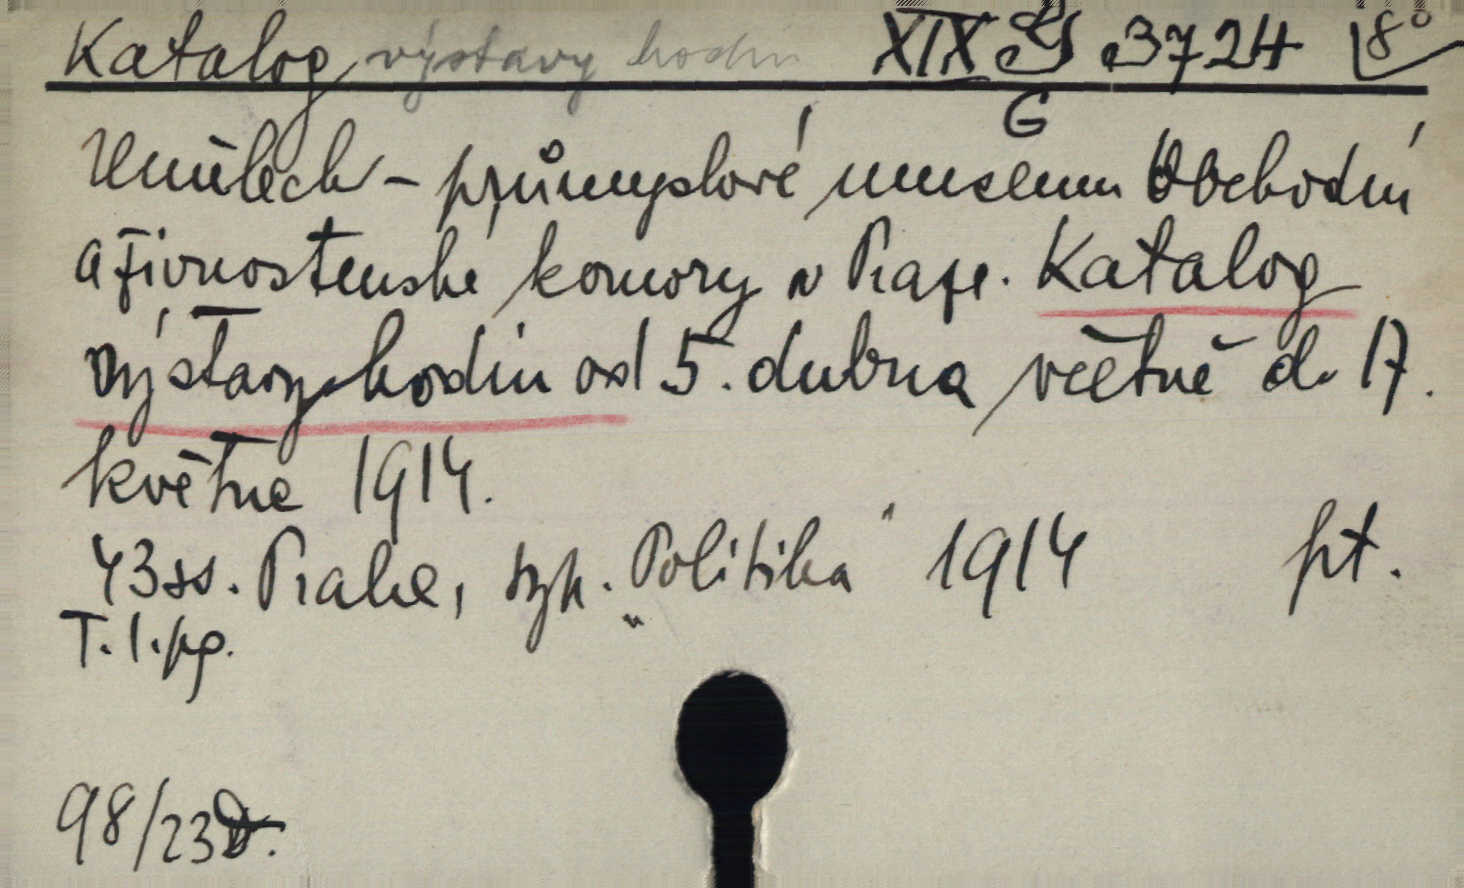 Katalog výstavy hodin XIX G 3724 8°
G
Uměleck-průmyslové museum Obchodní
a živnostenské komory v Praze. Katalog
výstavy hodin od 5. dubna včetně do 17.
květne 1914.
43 ss. Praha, typ. „Politika" 1914 pt.
T. 1. pg.
98/23 D.